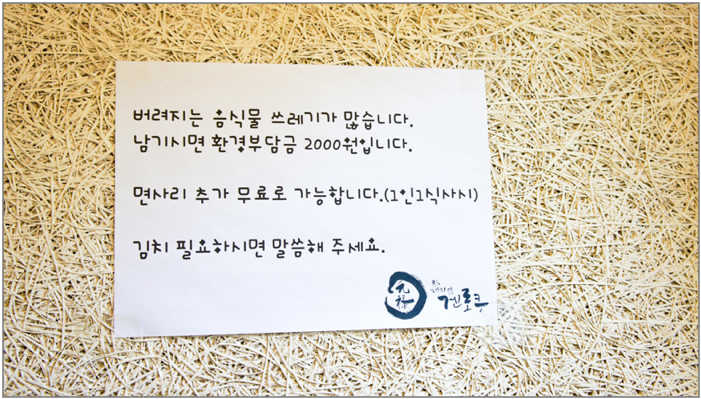 버려지는 음식물 쓰레기가 많습니다.
남기시면 환경부담금 2000원입니다.
면사리 추가 무료로 가능합니다.(1인1식사시)
김치 필요하시면 말씀해 주세요.
겐로쿠